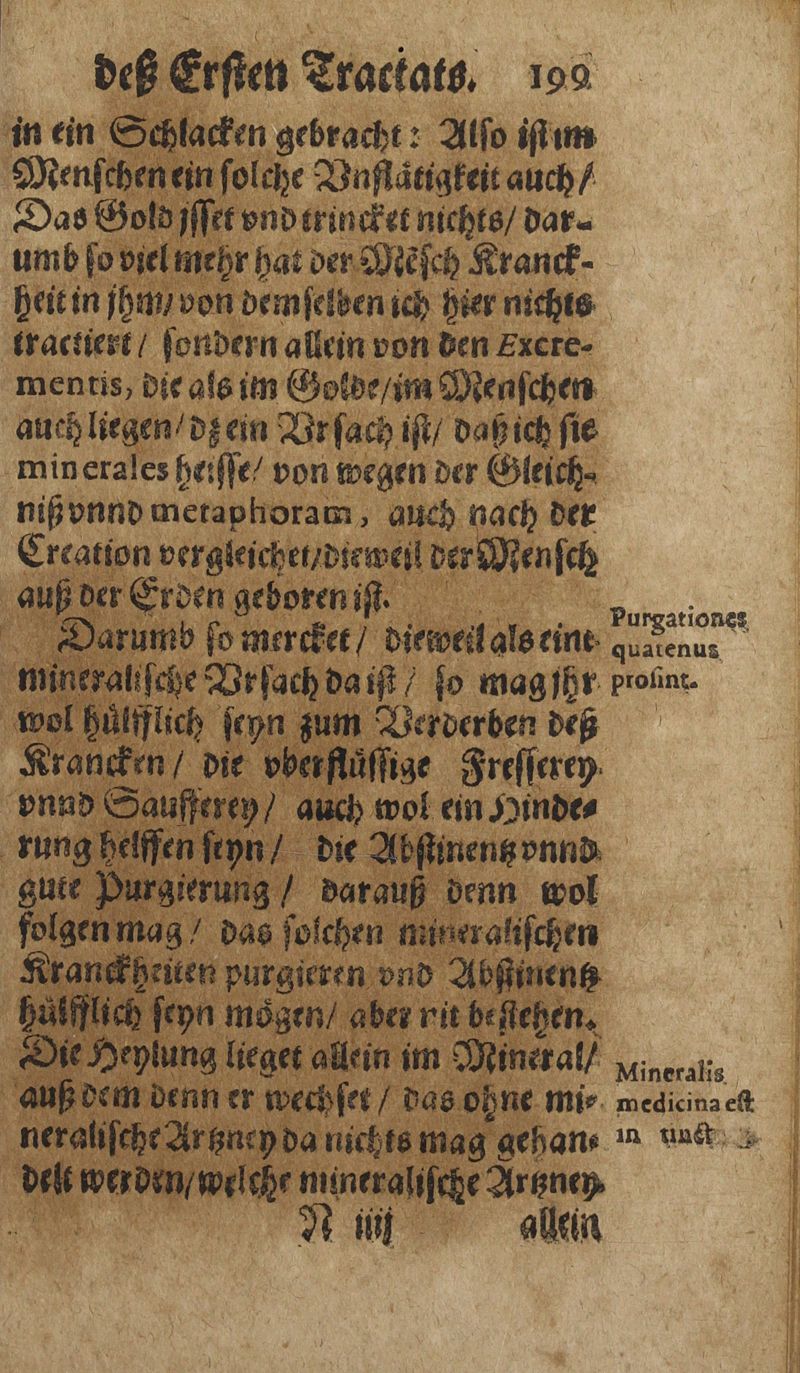 deß Erſten Tractats. 199
in ein Schlacken gebracht: Alſo iſt im
Menſchen ein ſolche Vnflätigkeit auch/
Das Gold jſſet vnd trincket nichts/ dar-
umb ſo viel mehr hat der Mēſch Kranck-
heit in jhm/ von demſelben ich hier nichts
tractiert/ ſondern allein von den Excre-
mentis, die als im Golde/ im Menſchen
auch liegen/ dz ein Vrſach iſt/ daß ich ſie
minerales heiſſe/ von wegen der Gleich-
niß vnnd metaphoram, auch nach der
Creation vergleichet/ dieweil der Menſch
auß der Erden geboren iſt.
Darumb ſo mercket/ dieweil als eine
mineraliſche Vrſach da iſt/ ſo mag jhr
wol hülfflich ſeyn zum Verderben deß
Krancken/ die vberflüſſige Freſſerey
vnnd Saufferey/ auch wol ein Hinde-
rung helffen ſeyn/ die Abſtinentz vnnd
gute Purgierung/ darauß denn wol
folgen mag/ das ſolchen mineraliſchen
Kranckheiten purgieren vnd Abſtinentz
hülfflich ſeyn mögen/ aber nit beſtehen.
Die Heylung lieget allein im Mineral/
auß dem denn er wechſet/ das ohne mi-
neraliſche Artzney da nichts mag gehan-
delt werden/ welche mineraliſche Artzney
N iiij allein
Purgationes
quatenus
proſint.
Mineralis
medicina eſt
in